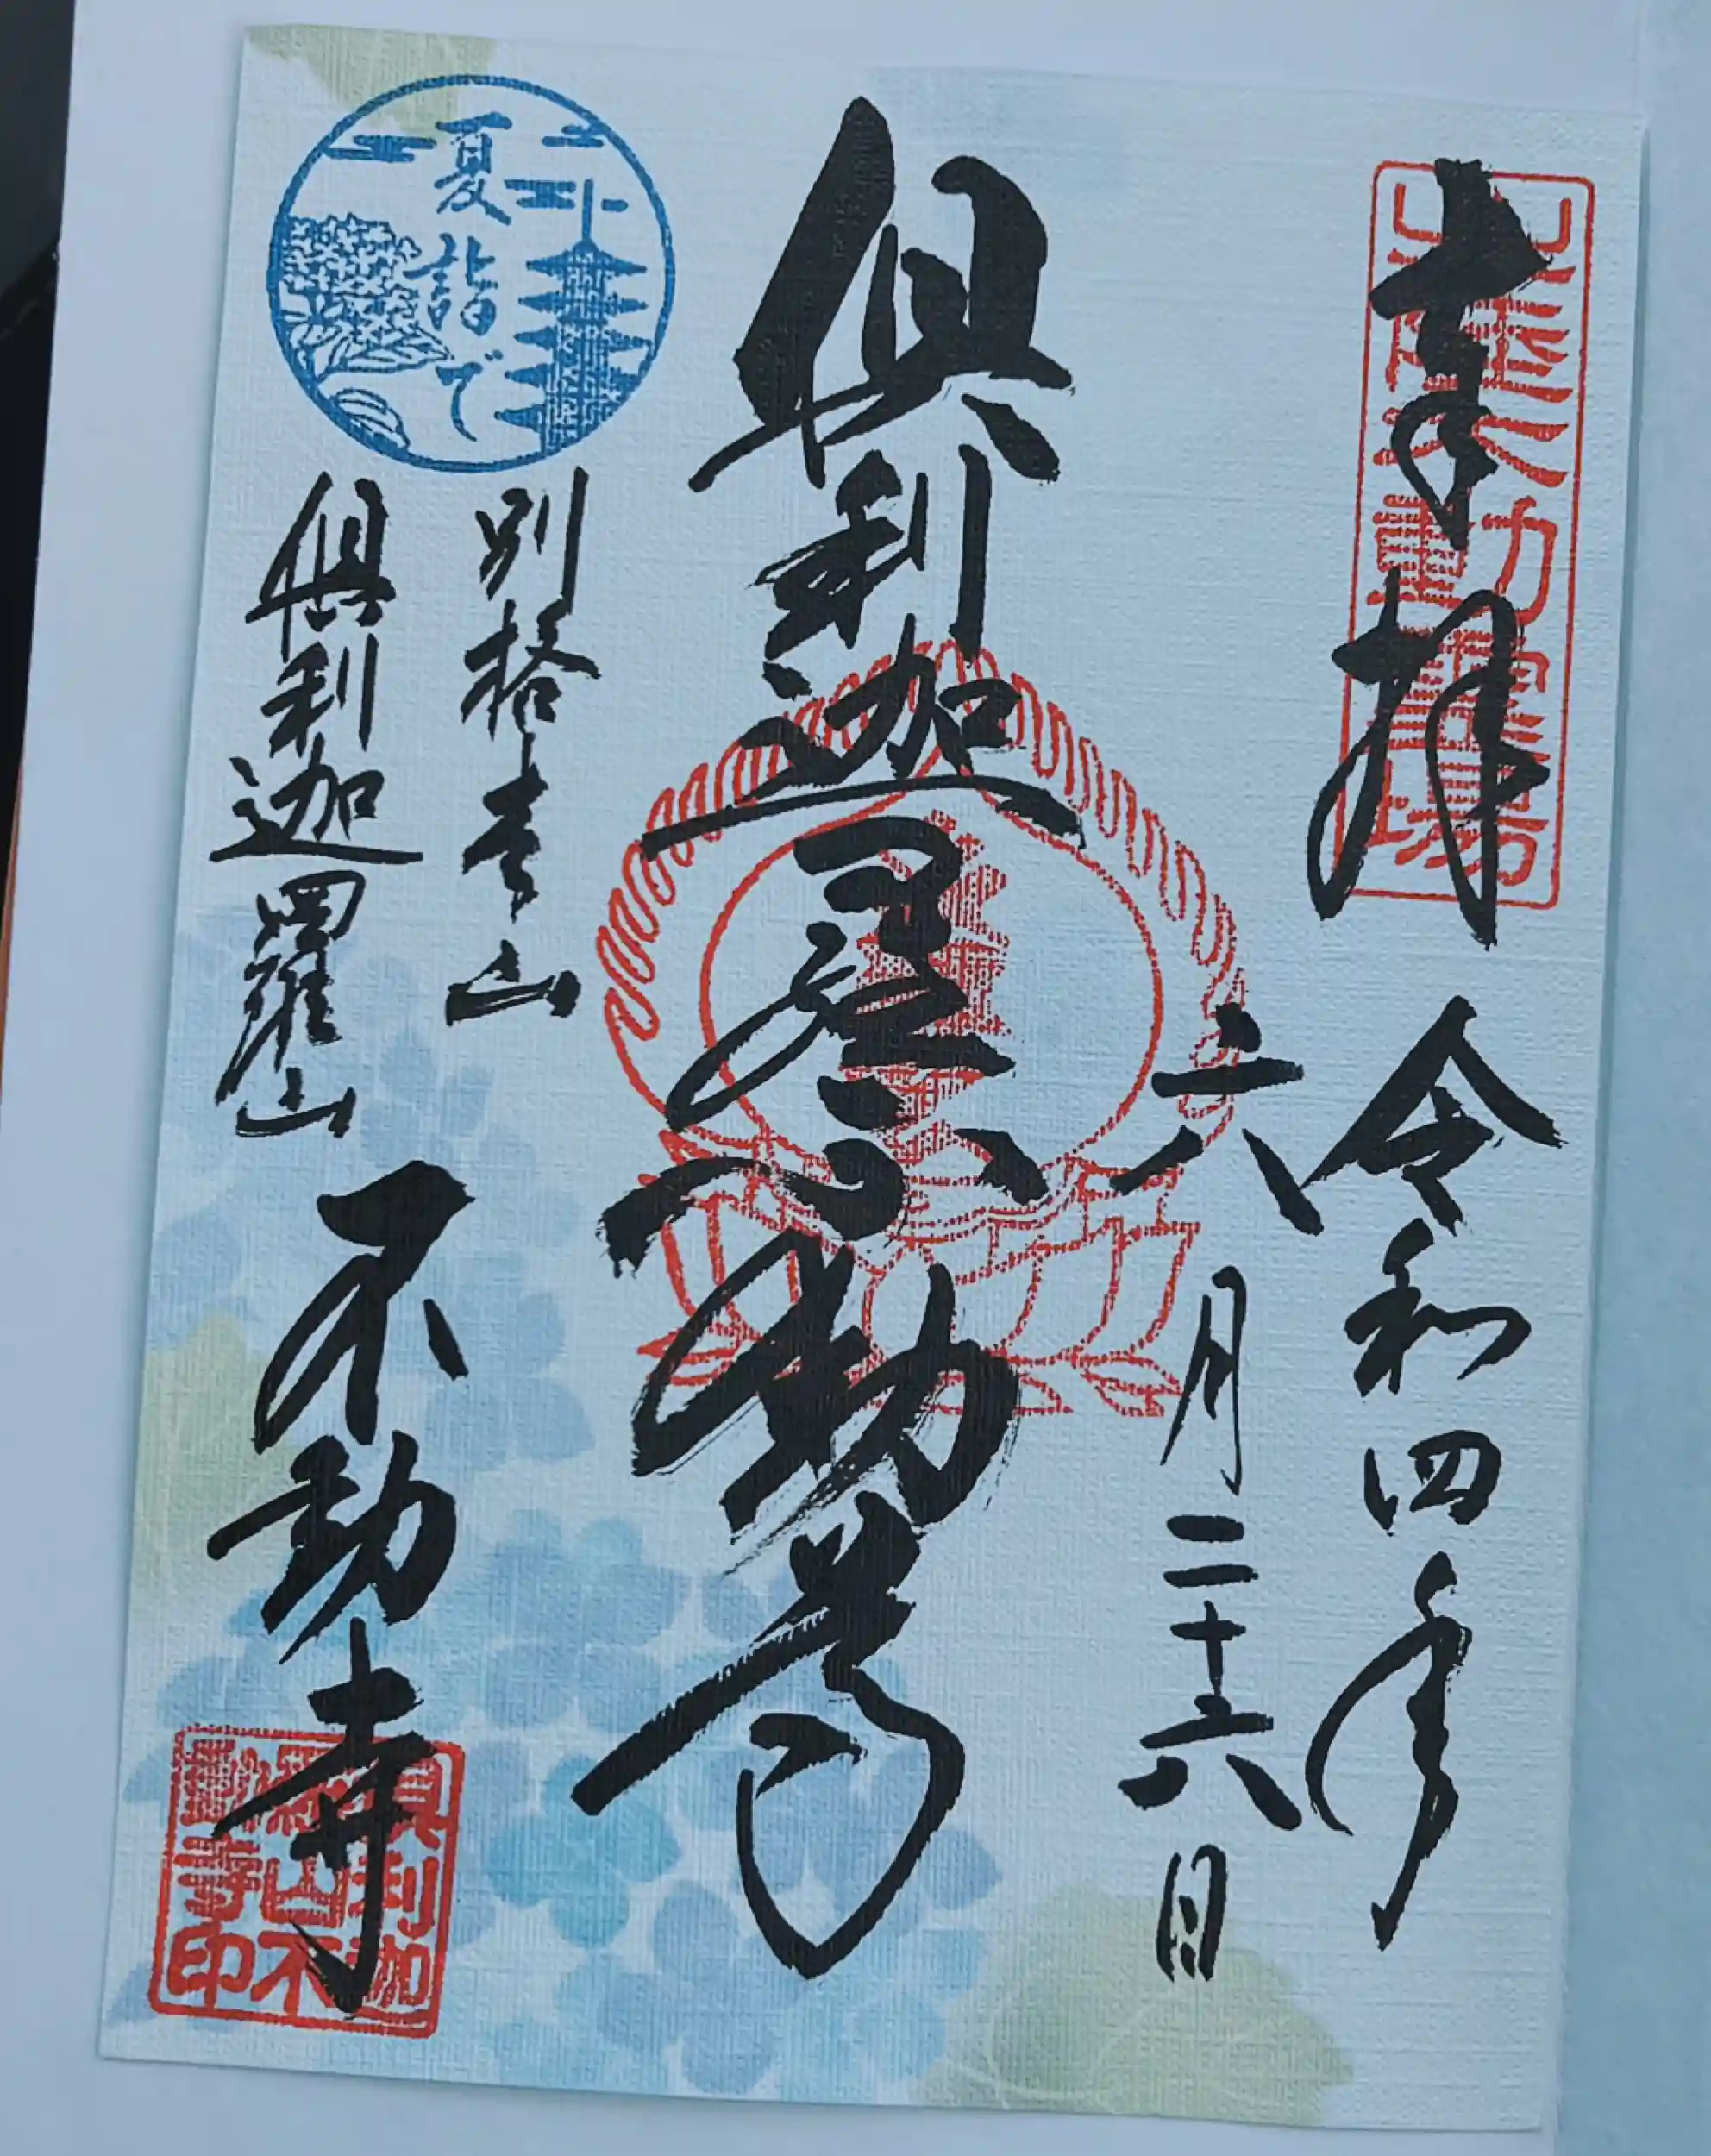 奉拝
令和四年
六月二十六日
倶利迦羅不動尊
夏詣で
別格本山
倶利迦羅山
不動寺
倶利迦
羅山不
動寺印